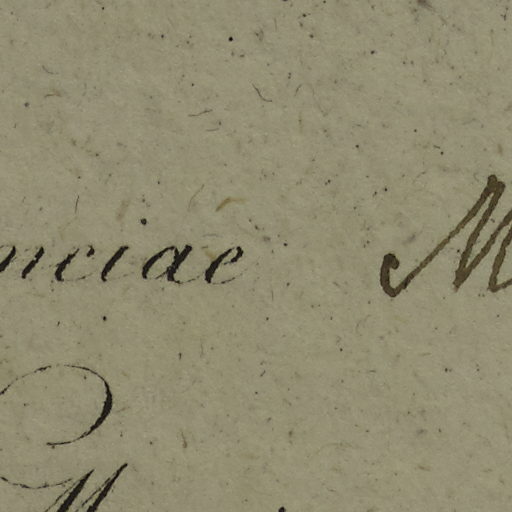 nciae M
M